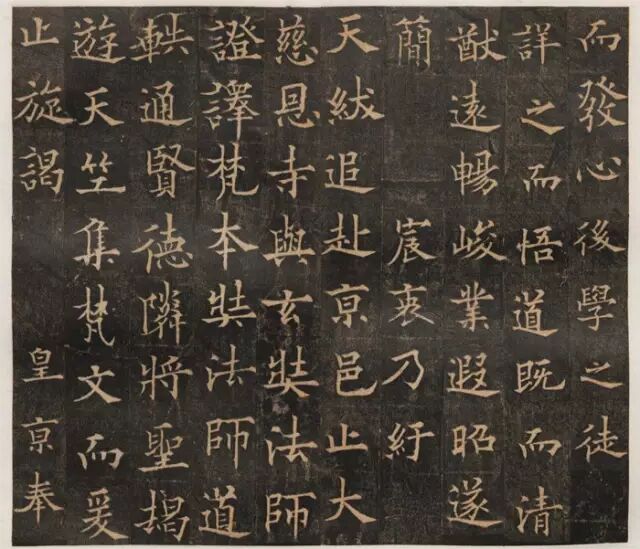 而發心後學之徒
詳之而悟道既而清
猷遠暢峻業遐昭遂
簡 宸衷乃紆
天紱追赴亰邑止大
慈恩寺與玄奘法師
證譯梵本奘法師道
軼通賢德隣將聖揭
遊天竺集梵文而爰
止旋謁 皇亰奉